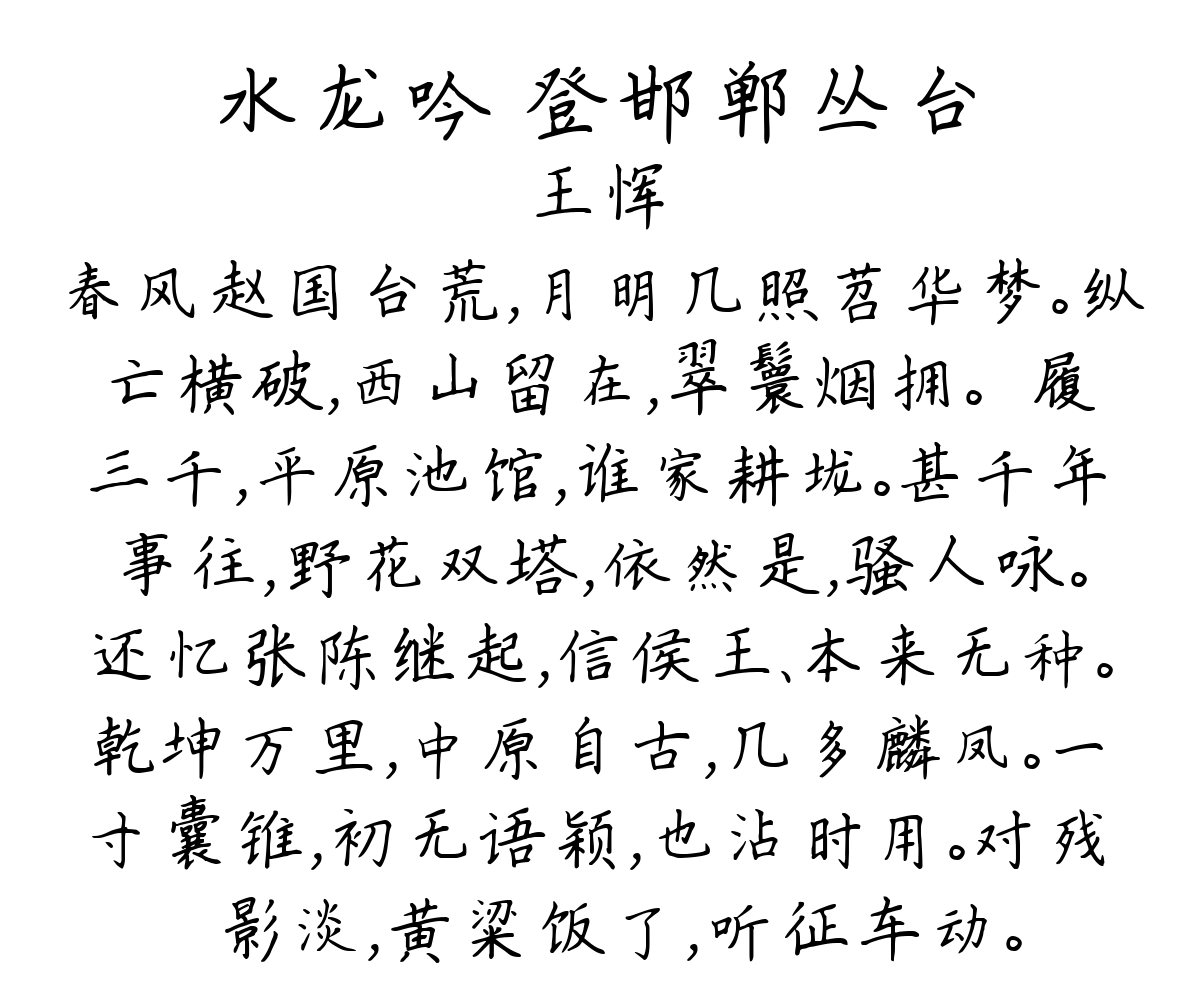 水龙吟 登邯郸丛台
王恽
春风赵国台荒,月明几照苕华梦。纵
亡横破,西山留在,翠鬟烟拥。履
三千,平原池馆,谁家耕垅。甚千年
事往,野花双塔,依然是,骚人咏。
还忆张陈继起,信侯王、本来无种。
乾坤万里,中原自古,几多麟凤。一
寸囊锥,初无语颖,也沾时用。对残
影淡,黄粱饭了,听征车动。